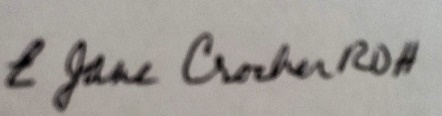 E Jane Crocker RDH